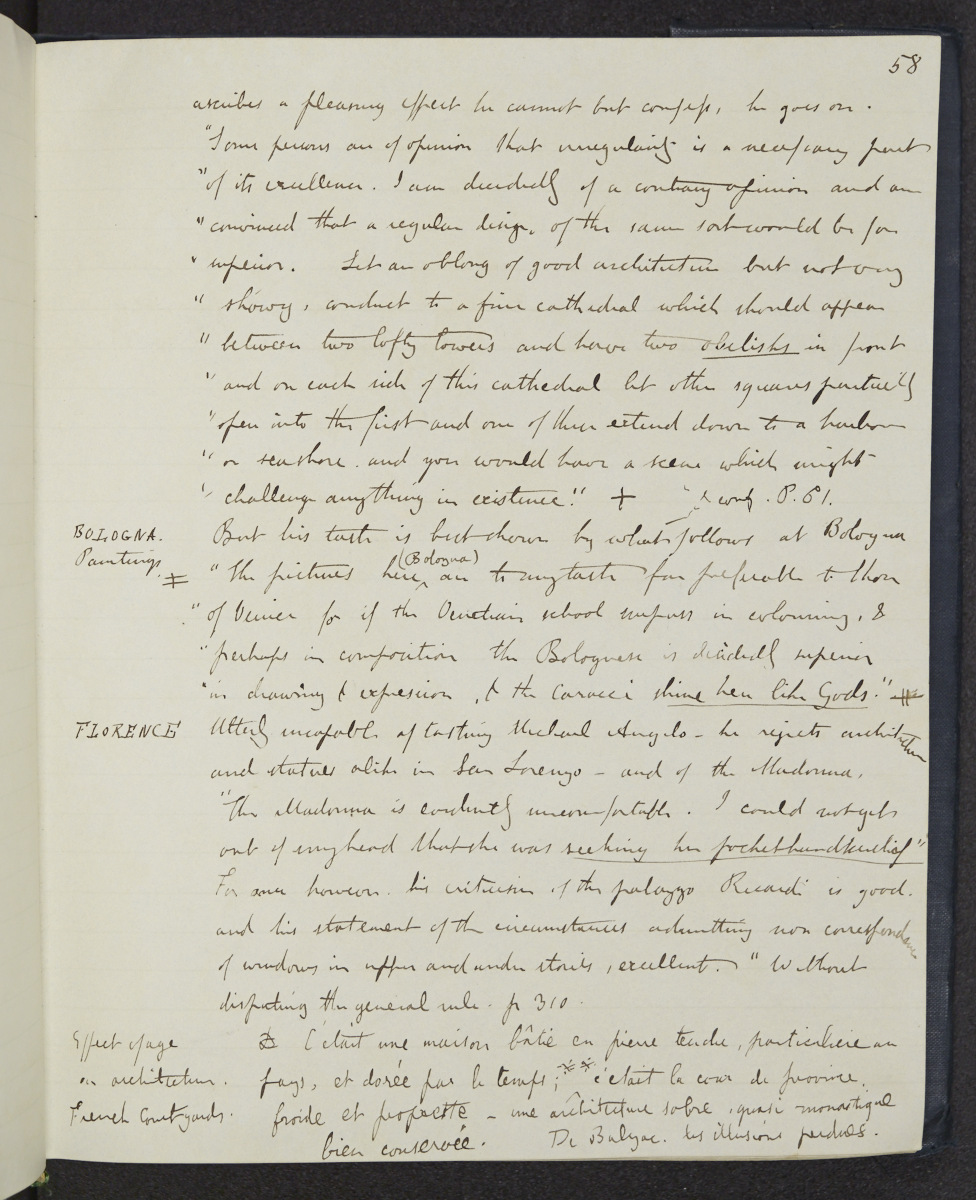 58
ascribes a pleasing effect he cannot but confess, he goes on.
"Some persons are of opinion that irregularity is a necessary part
"of its excellence. I am decidedly of a contrary opinion and am
"convinced that a regular design, of the same sort would be far
"superior. Let an oblong of good architecture but not very
"showy, conduct to a fine cathedral which should appear
"between two lofty towers and have two obelisks in front
"and on each side of this cathedral let other squares partially
"open into the first and one of these extend down to a harbour
"or seashore. and you would have a scene which might
"challenge anything in existence." + x cont. P. 61.
BOLOGNA.
Paintings. ‡
But his taste is best shown by what follows at Bologna
"The pictures here (Bologna) are to my taste far preferable to those
"of Venice for if the Venetian school surpass in colouring, &
"perhaps in composition the Bolognese is decidedly superior
"in drawing & expression, & the Caracci shine here like Gods." ‡
FLORENCE
Utterly incapable of tasting Michael Angelo - he rejects architecture
and statues alike in San Lorenzo - and of the Madonna,
"The Madonna is evidently uncomfortable. I could not get
out of my head that she was seeking her pockethandkerchief"
For once however. his criticism of the palazzo Ricardi is good.
and his statement of the circumstances admitting non correspondence
of windows in upper and under stories, excellent. "Without
disputing the general rule. p 310.
Effect of age
on architecture.
French Courtyards.
C'était une maison bâtie en pierre tendre, particulière au
pays, et dorée par le temps; ** c'était la cour de province,
froide et proprette - une architecture sobre, quasi monastique
bien conservée. De Balzac. Les illusions perdues.